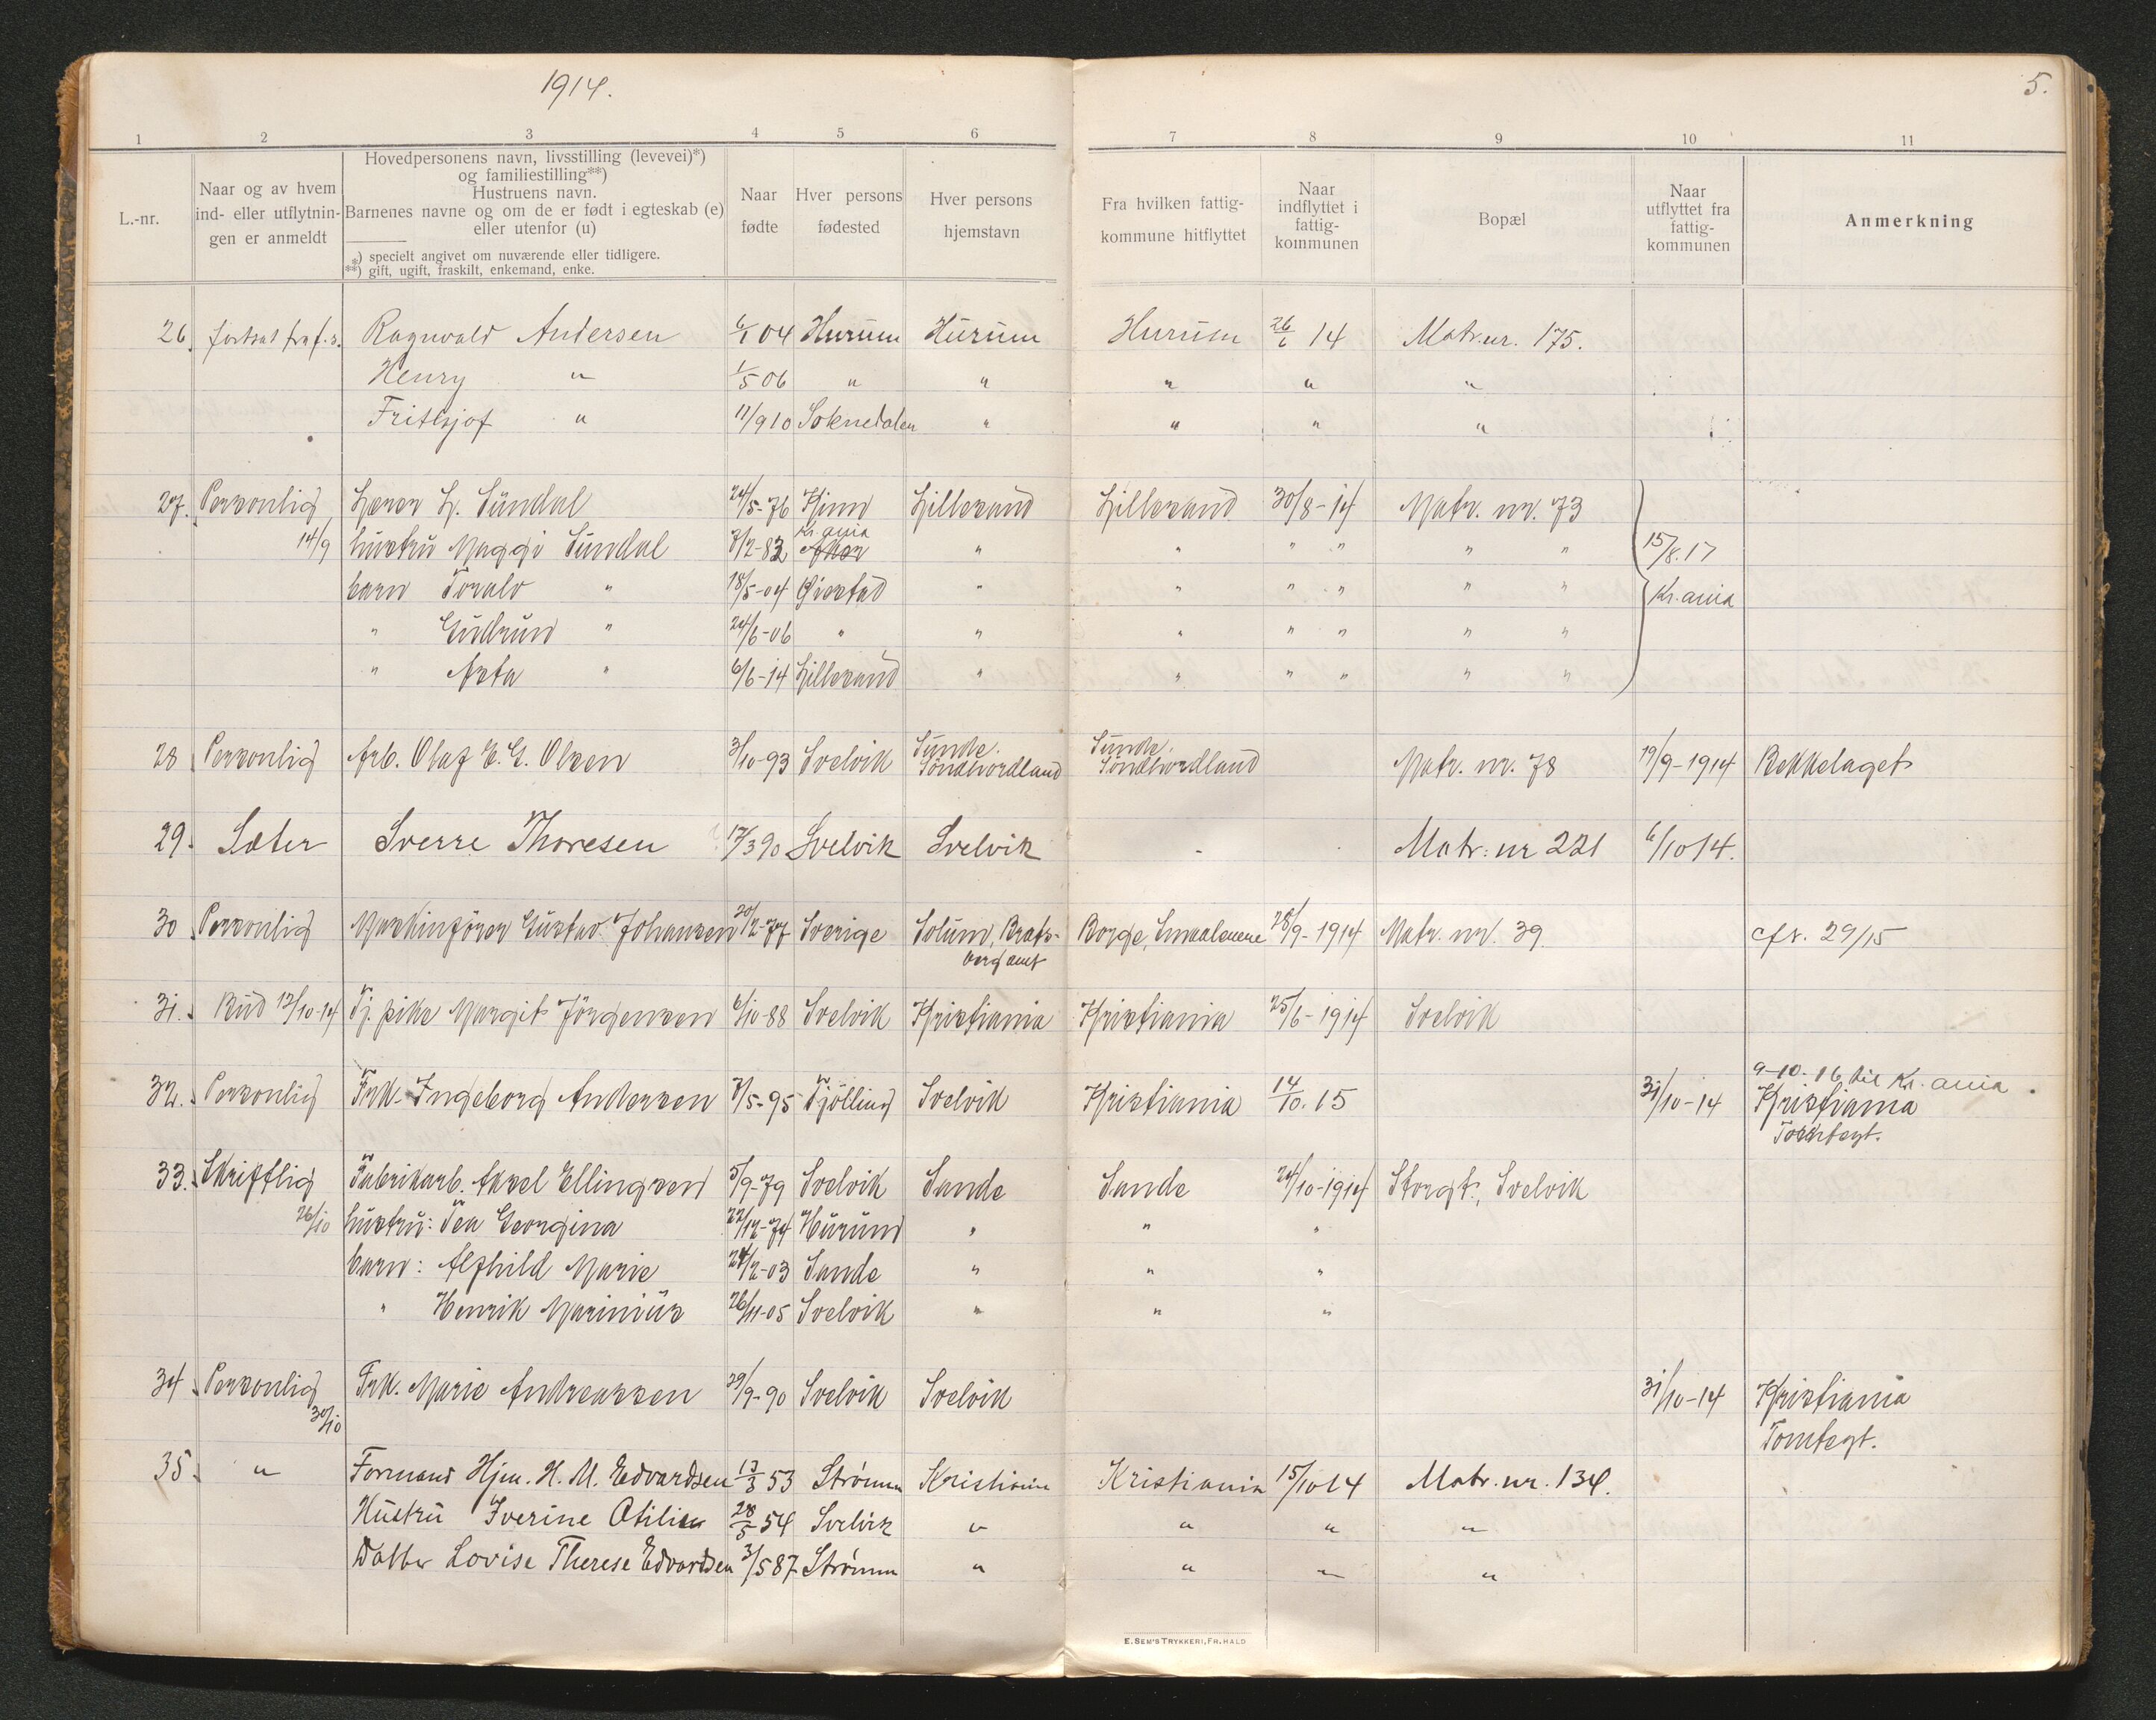 1914.
5.
1 2 3 4 5 6 7 8 9 10 11
L.-nr.
Naar og av hvem
ind- eller utflytnin-
gen er anmeldt
Hovedpersonens navn, livsstilling (levevei)*)
og familiestilling**)
Hustruens navn.
Barnenes navne og om de er født i egteskab (e)
eller utenfor (u)
*) specielt angivet om nuværende eller tidligere.
**) gift, ugift, fraskilt, enkemand, enke.
Naar
fødte
Hver persons
fødested
Hver persons
hjemstavn
Fra hvilken fattig-
kommune hitflyttet
Naar
indflyttet i
fattig-
kommunen
Bopæl
Naar
utflyttet fra
fattig-
kommunen
Anmerkning
26. fortsat fra f.s. Ragnvald Andersen 6/1 04 Hurum Hurum Hurum 26/6 14 Matr.nr. 175.
Henry " 1/5 06 " " " " "
Frithjof " 11/9 10 Soknedalen " " " "
27. Personlig Lærer L. Sundal 24/5-76 Kinn Lillesand Lillesand 30/8-14 Matr. nr. 73
14/9 hustru Maggi Sundal 7/2-82 Kr.ania Aker " " " " " " 15/8.17
barn Toralv " 18/5-04 Øiestad " " " " " " Kr.ania
" Gudrun " 24/6-06 " " " " " " "
" Asta " 6/6-14 Lillesand " " " " " "
28. Personlig Arb. Olaf E. G. Olsen 3/10-93 Svelvik Sunde. Søndhordland Sunde. Søndhordland Matr. nr. 78 19/9-1914 Bekkelaget
29. Sæter Sverre Thoresen 17/3 90 Svelvik Svelvik - Matr: nr 221 6/10 14.
30. Personlig Maskinfører Gustav Johansen 20/12-77 Sverige Solum, Brats- Borge, Smaalenene 28/9-1914 Matr. nr. 39. cfr. 29/15
berg amt
31. Bud 12/10-14 Tj. pike Margit Jörgensen 6/10-88 Svelvik Kristiania Kristiania 25/6-1914 Svelvik
32. Personlig Frk. Ingeborg Andersen 7/5-95 Tjölling Svelvik Kristiania 14/10.15 31/10-14 9-10-16 til Kr.ania.
Kristiania
33. Skriftlig Fabrikarb. Aksel Ellingsen 5/9-79 Svelvik Sande Sande 24/10-1914 Storgt., Svelvik
26/10 hustru: Tea Georgina 22/12-74 Hurum " " "
barn: Alfhild Marie 24/2-03 Sande " " "
" Henrik Marinius 26/11-05 Svelvik " " "
34. Personlig Frk. Marie Andreassen 29/9-90 Svelvik Svelvik 31/10-14 Kristiania
30/10 Tomtegt.
35. " Formand Hjm. H. M. Edvardsen 13/3 53 Strømm Kristiania Kristiania 15/10 14 Matr. nr. 134.
Hustru Iverine Otilie 28/5 54 Svelvik " " " "
Datter Lovise Therese Edvardsen 3/5 87 Strømm " " " "
E. SEM'S TRYKKERI, FR.HALD